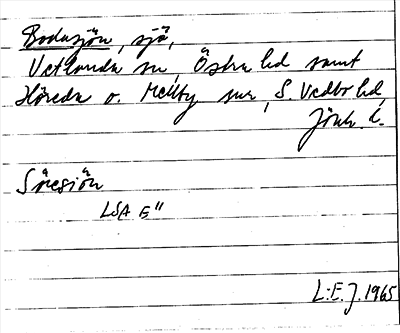 Bodasjön, sjö,
Vetlanda sn, Östra hd samt
Höreda o. Mellby snr, S. Vedbo hd,
Jönk. l.
Säresjön
LSA E"
L:E. J. 1965